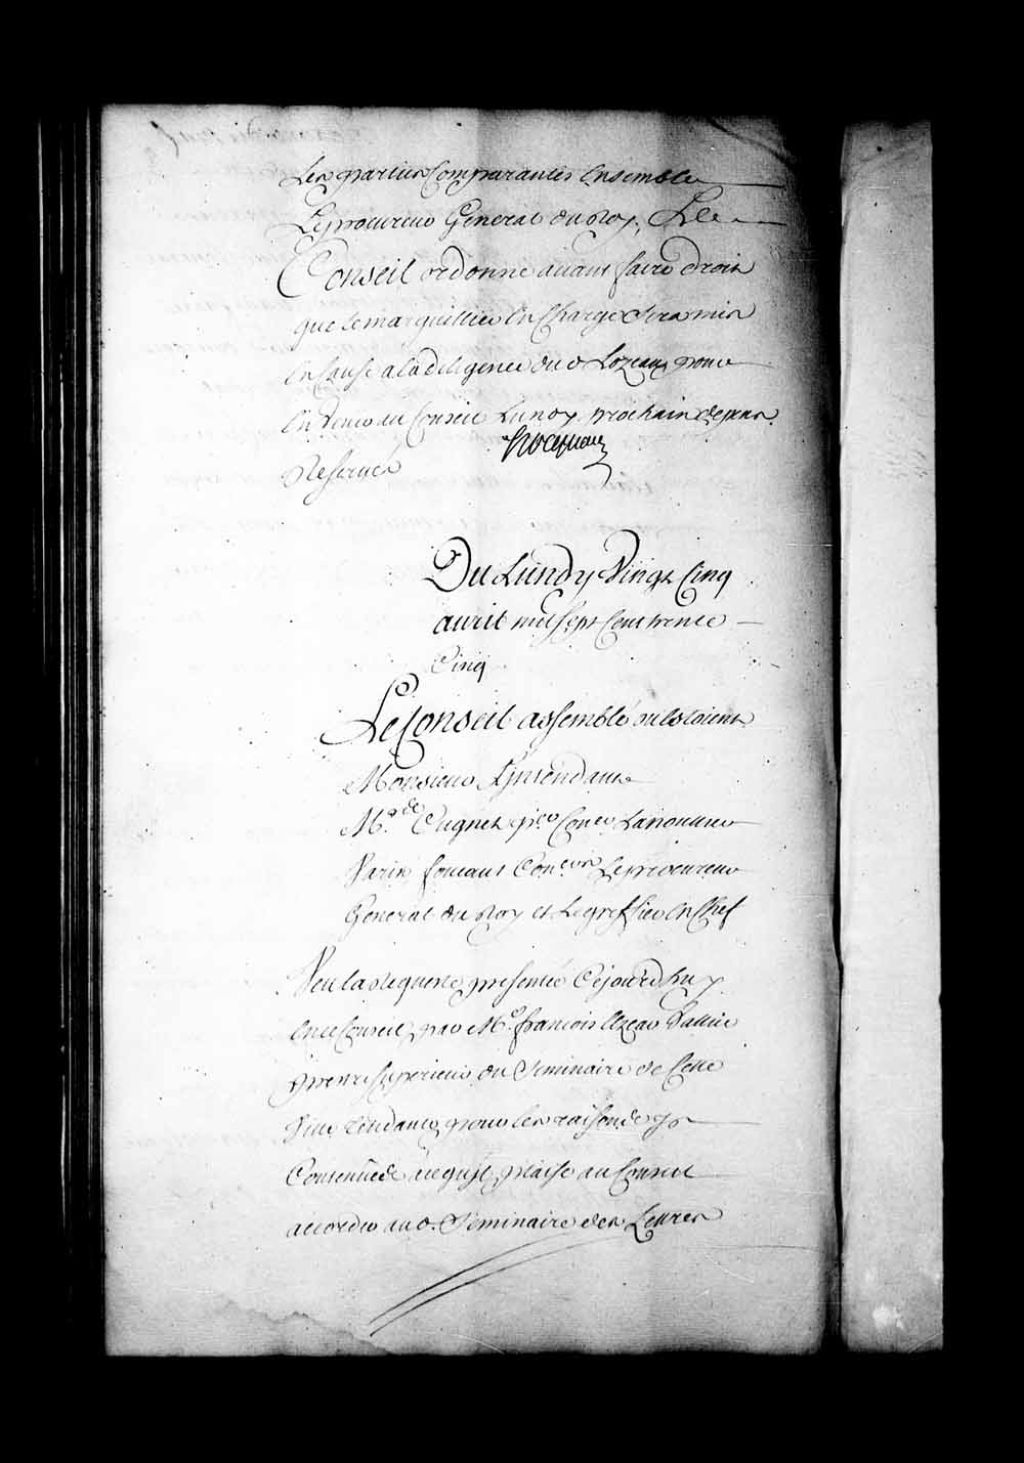 Les parties Comparantes Ensemble
Le procureur General du Roy, Le
Conseil ordonne avant faire droit
que le marguillier En Charge Sera mis
En Cause a la diligence du d. Lozeau pour
En venir au Conseil Lundy prochain depens
Reservés
Hocquart
Du Lundy Vingt Cinq
avril mil sept Cent trente
Cinq
Le Conseil assemblé ou Estoient
Monsieur L'Intendant
Mrs. de Cugnet pr. Coner Lanouiller
Varin foucault Coners Le procureur
General du Roy et Le greffier En Chef
Veu la Requeste presentée Cejourd'huy
En Ce Conseil, par Me. francois Elzear Vallier
prestre superieur du Seminaire de Cette
Ville tendante pour les raisons y
Contenües a ce qu'il plaise au Conseil
accorder au d. Seminaire des Lettres